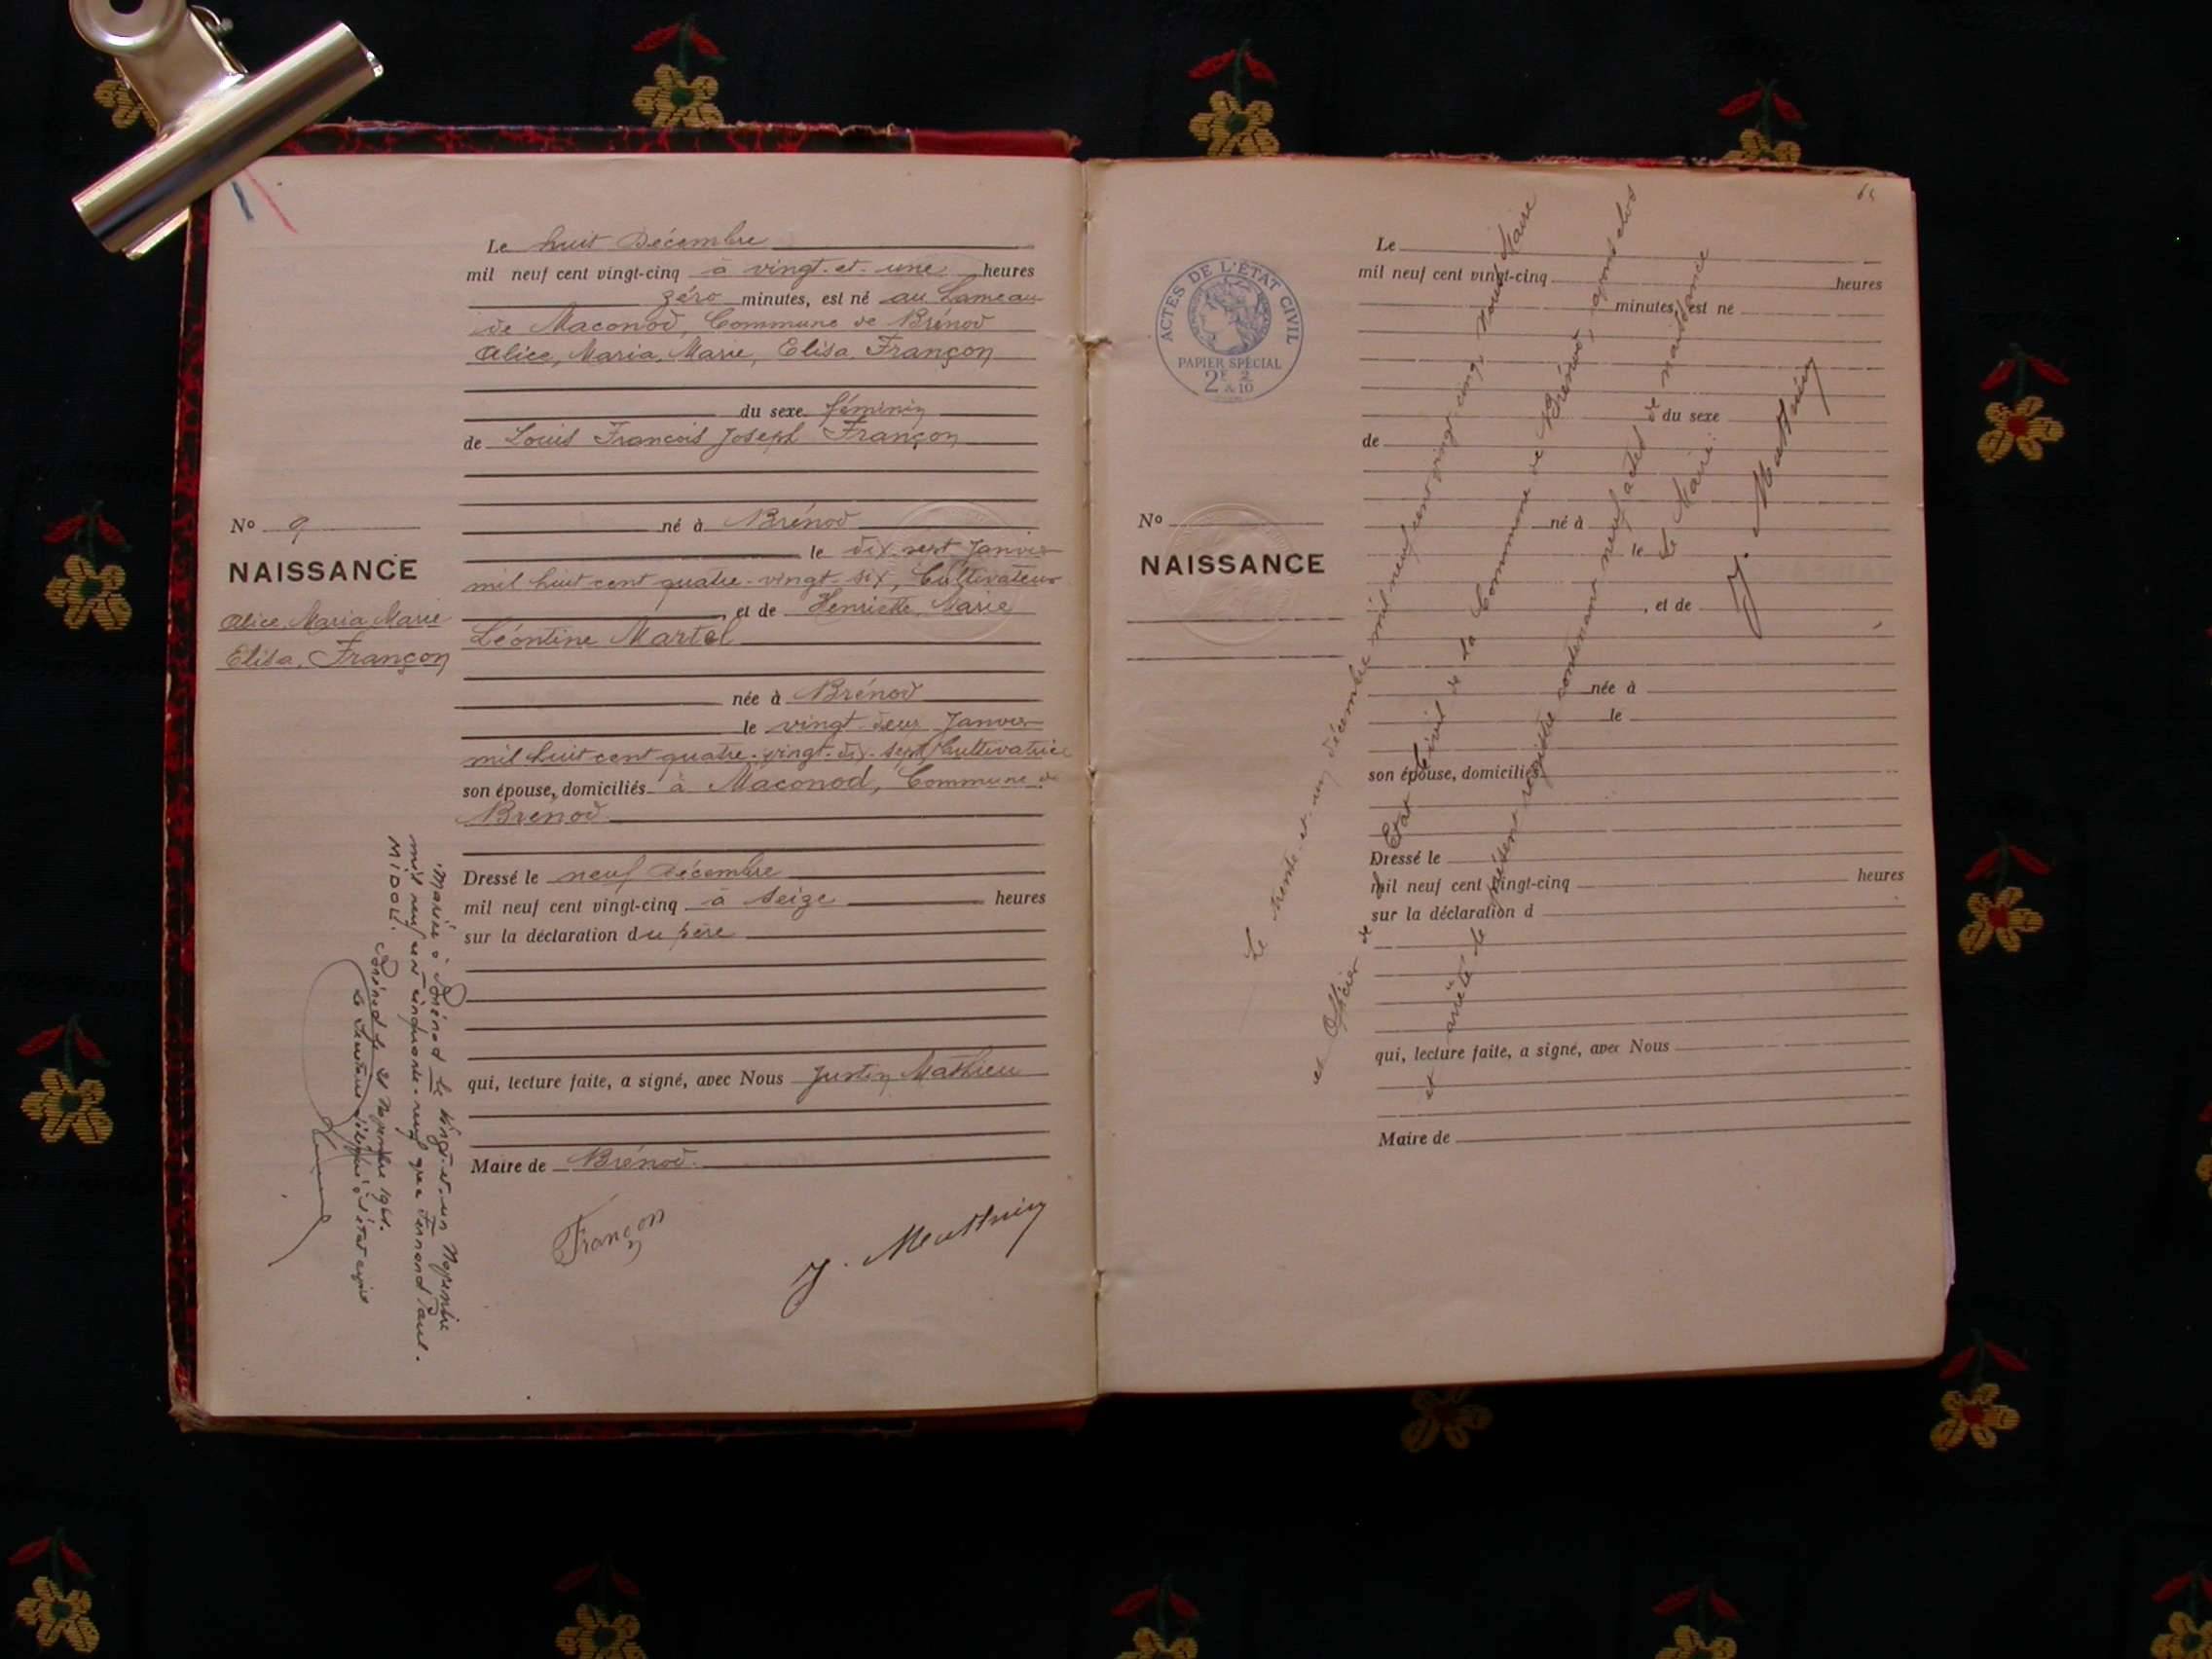 Le huit Décembre
mil neuf cent vingt-cinq à vingt-et-une heures
zéro minutes, est né au hameau
de Maconod, Commune de Brénod
Alice, Maria, Marie, Elisa, Françon
du sexe féminin
de Louis François Joseph Françon
né à Brénod
le dix-sept Janvier
mil huit cent quatre-vingt-six, Cultivateur
, et de Henriette, Marie
Léontine Martel
née à Brénod
le vingt-deux Janvier
mil huit cent quatre-vingt-dix-sept, Cultivatrice
son épouse, domiciliés à Maconod, Commune de
Brénod
Dressé le neuf Décembre
mil neuf cent vingt-cinq à seize heures
sur la déclaration du père
qui, lecture faite, a signé, avec Nous Justin Mathieu
Maire de Brénod.
Françon
J. Mathieu
No 9
NAISSANCE
Alice, Maria Marie
Elisa, Françon
Mariée à Brénod le vingt-et-un Novembre
mil neuf cent cinquante-neuf avec Fernand Paul
MIDOL. Brénod le 21 Novembre
Le Secrétaire délégué à l'état civil
ACTES DE L'ÉTAT CIVIL
PAPIER SPÉCIAL
2F 2
& 10
No
NAISSANCE
Le
mil neuf cent vingt-cinq heures
minutes, est né
du sexe
de
né à
le
, et de
née à
le
son épouse, domiciliés
Dressé le
mil neuf cent vingt-cinq heures
sur la déclaration d
qui, lecture faite, a signé, avec Nous
Maire de
Le trente-et-un décembre mil neuf cent vingt-cinq, Nous Maire
et Officier de l'Etat Civil de la Commune de Brénod, avons clos
et arrêté le présent registre contenant neuf actes de naissance
Le Maire
J. Mathieu